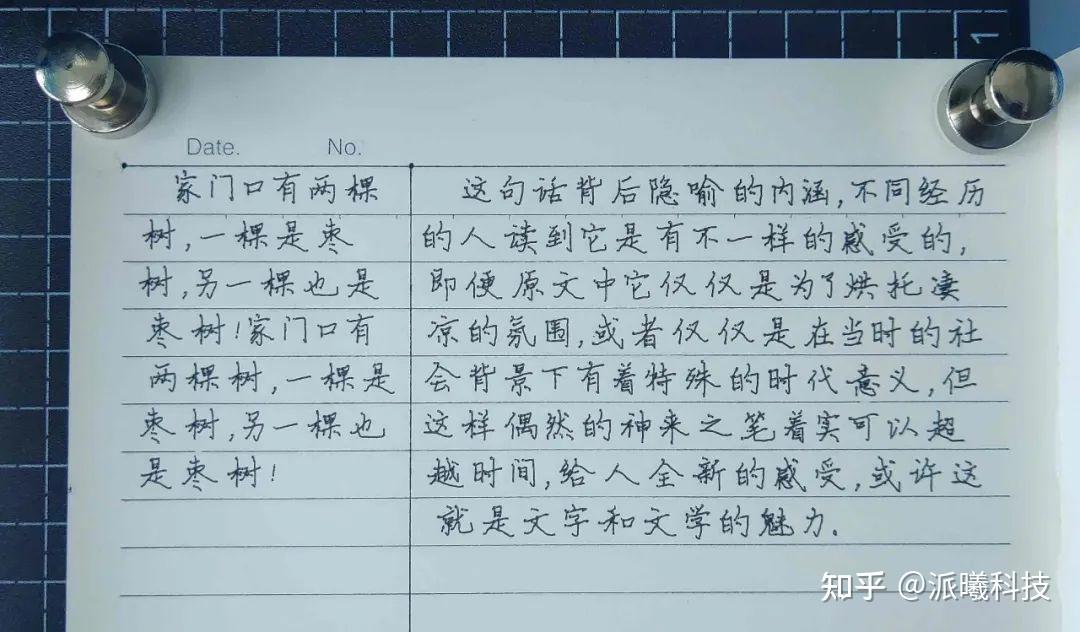 1
Date. No.
家门口有两棵
树,一棵是枣
树,另一棵也是
枣树!家门口有
两棵树,一棵是
枣树,另一棵也
是枣树!
这句话背后隐喻的内涵,不同经历
的人读到它是有不一样的感受的,
即便原文中它仅仅是为了烘托凄
凉的氛围,或者仅仅是在当时的社
会背景下有着特殊的时代意义,但
这样偶然的神来之笔着实可以超
越时间,给人全新的感受,或许这
就是文字和文学的魅力.
知乎 @派曦科技